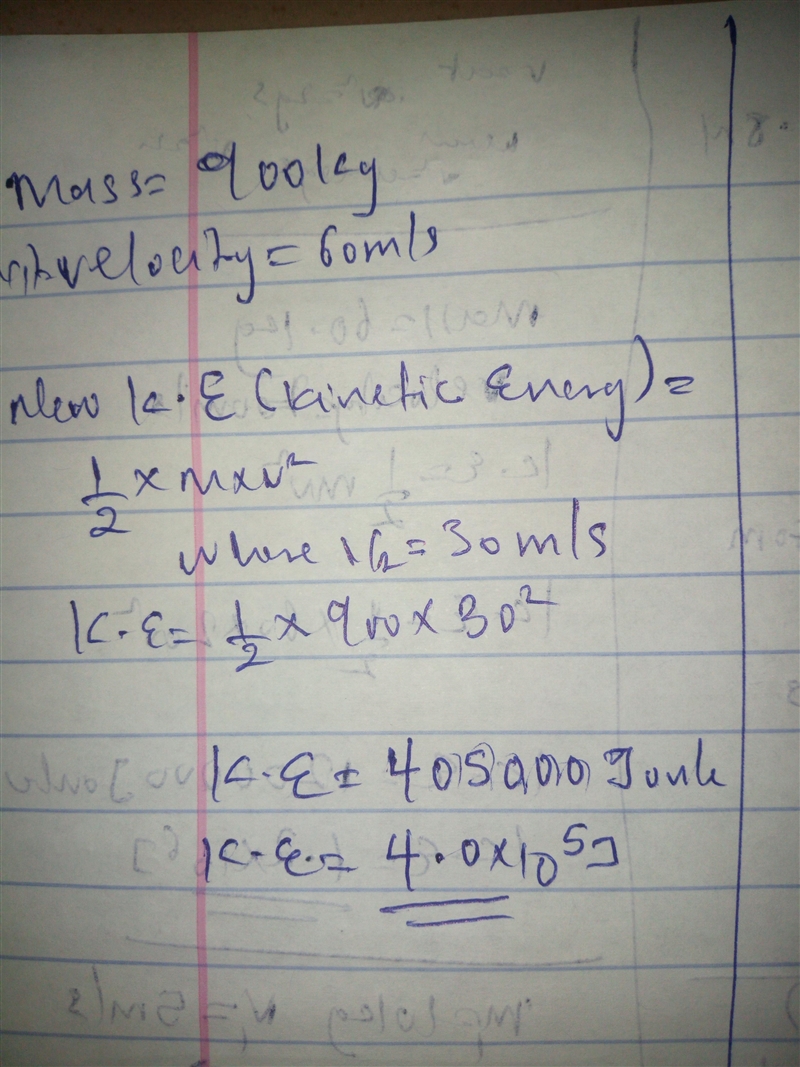 Mass = 900kg
velocity = 60m/s
New K.E (kinetic Energy) =
1/2 × m×v²
where V₂ = 30m/s
K.E = 1/2 × 900 × 30²
K.E = 405000 Joule
K.E. = 4.0×10⁵J